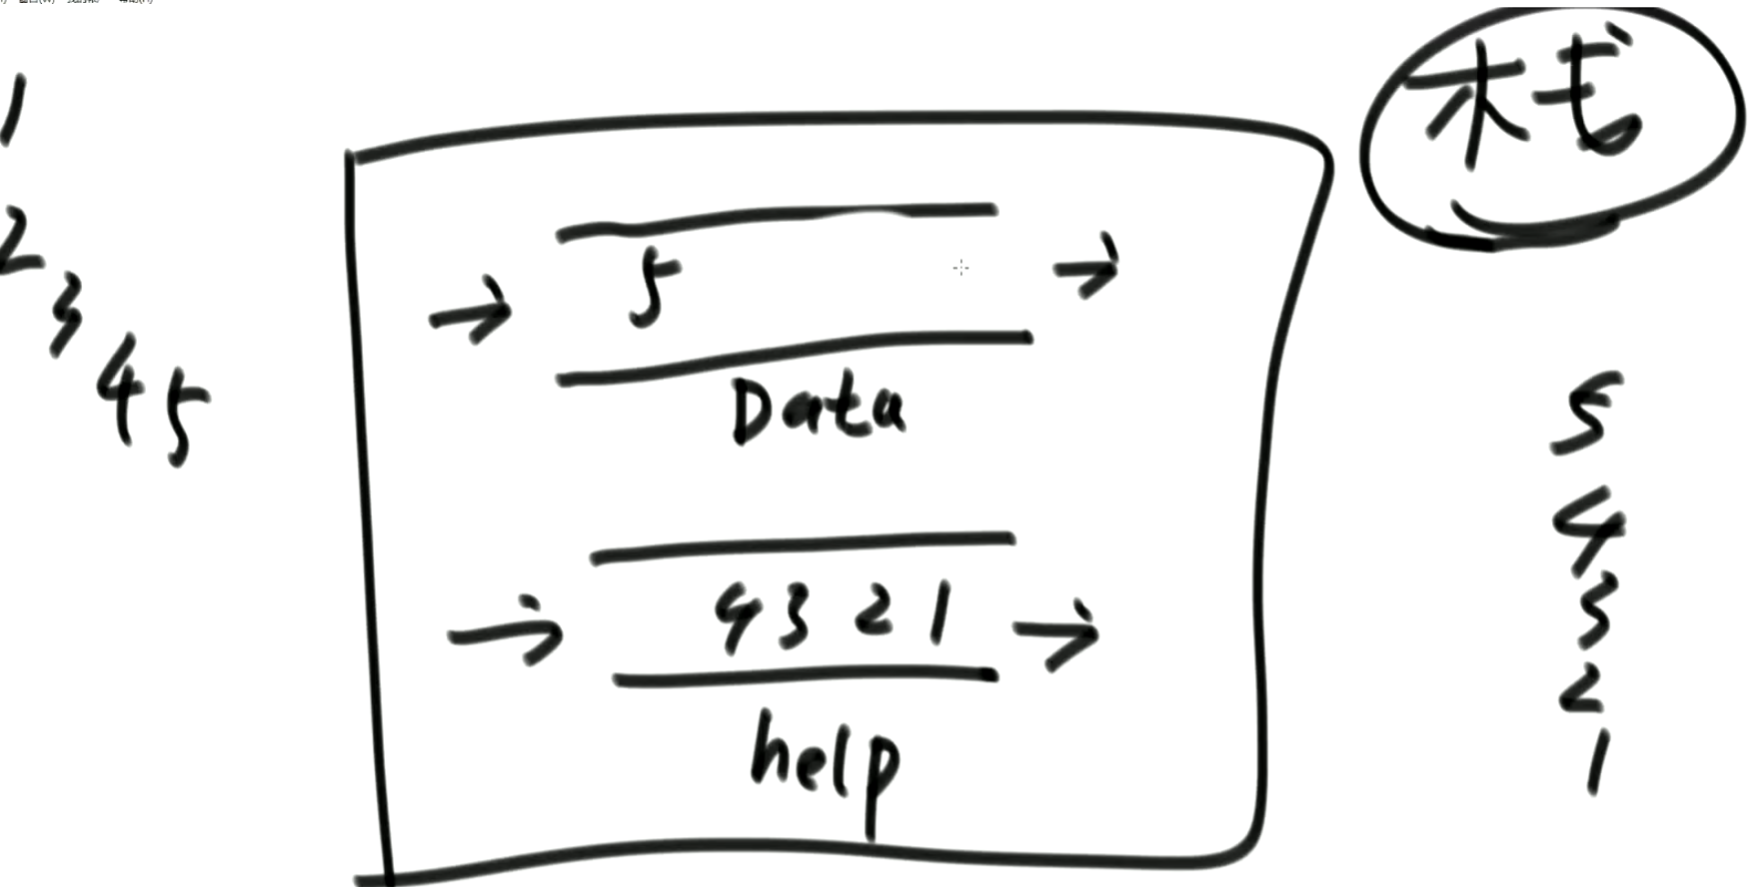 栈
1
2
3
4
5
5
Data
4 3 2 1
help
5
4
3
2
1